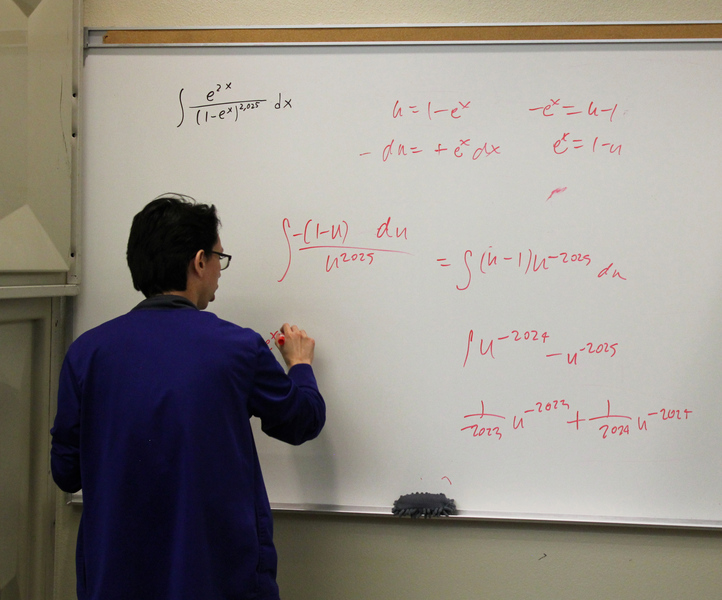 ∫ e^2x / (1-e^x)^2,025 dx
u = 1-e^x
-e^x = u-1
- du = + e^x dx
e^x = 1-u
∫ -(1-u) du / u^2025
= ∫ (u-1)u^-2025 du
∫ u^-2024 - u^-2025
1/-2023 u^-2023 + 1/2024 u^-2024